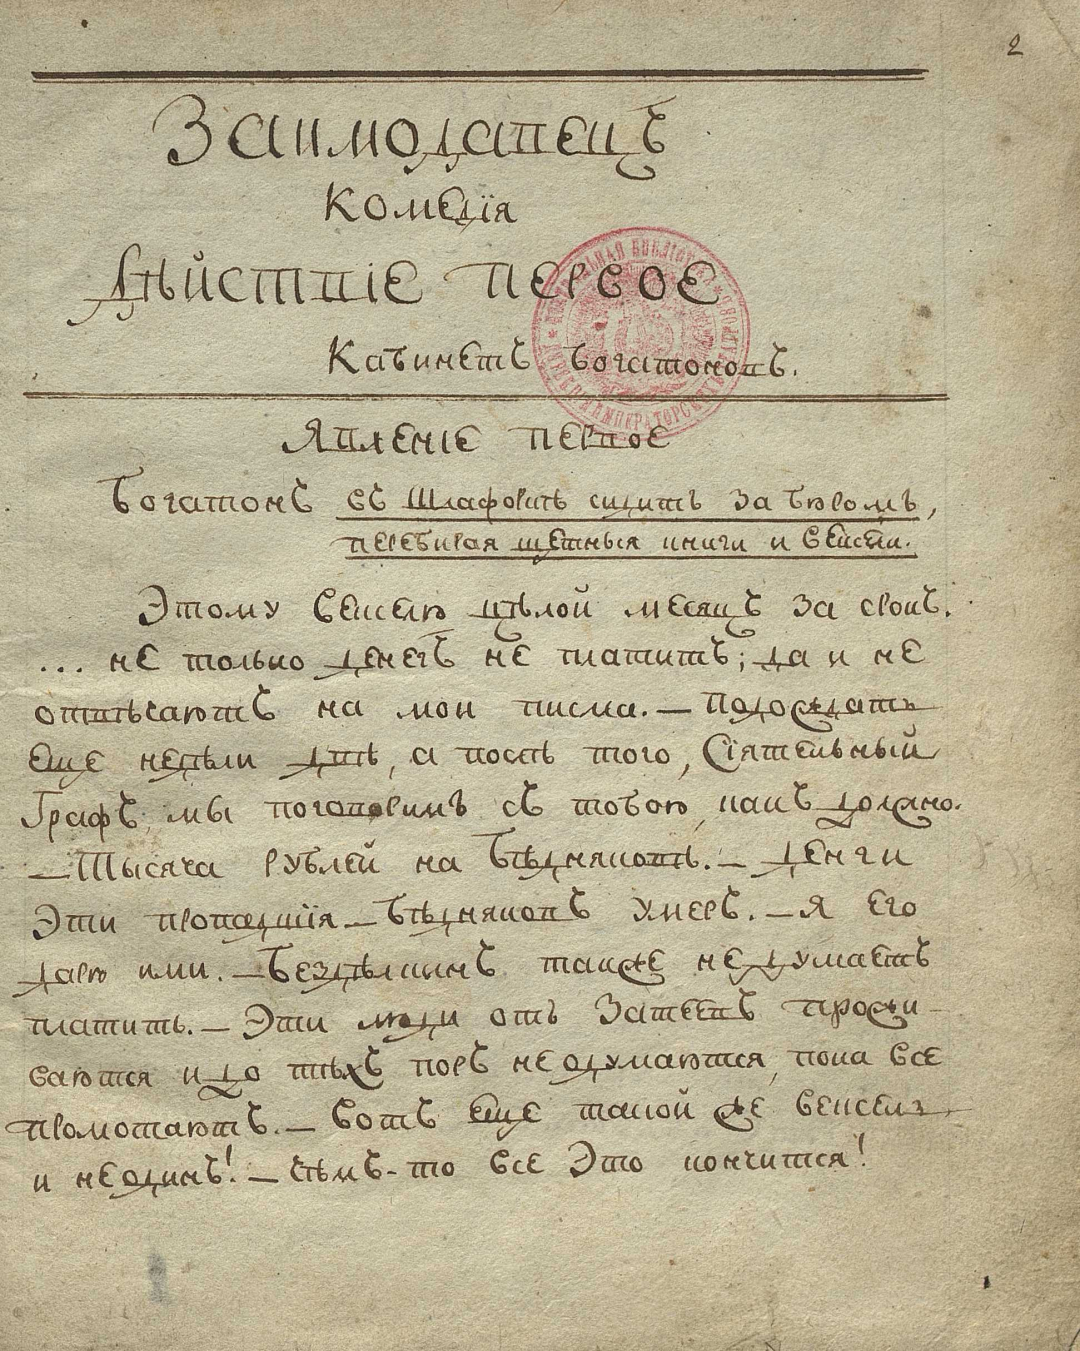 2
Заимодавецъ
Комедія
Дѣйствіе первое
Кабинетъ Богатоновъ.
Явленіе первое
Богатонъ въ шлафоркѣ сидитъ за бюромъ,
перебирая щетныя книги и вексели.
Этому векселю цѣлой месяцъ за срокъ.
... не только денегъ не платитъ; да и не
отвѣчаютъ на мои писма. — Подождать
еще недѣли двѣ, а послѣ того, Сіятельный
Графъ, мы поговоримъ съ тобою, какъ должно.
— Тысяча рублей на Бѣдняковѣ. — Денги
Эти пропадшія — Бѣдняковъ умеръ. — Я его
дарю ими. — Бездѣлкинъ также не думаетъ
платить. — Эти люди отъ Затеевъ прожи-
ваются и до тѣхъ поръ не одумаются, пока все
промотаютъ. — Вотъ еще такой же вексель
и не одинъ! — чѣмъ-то все Это кончится!